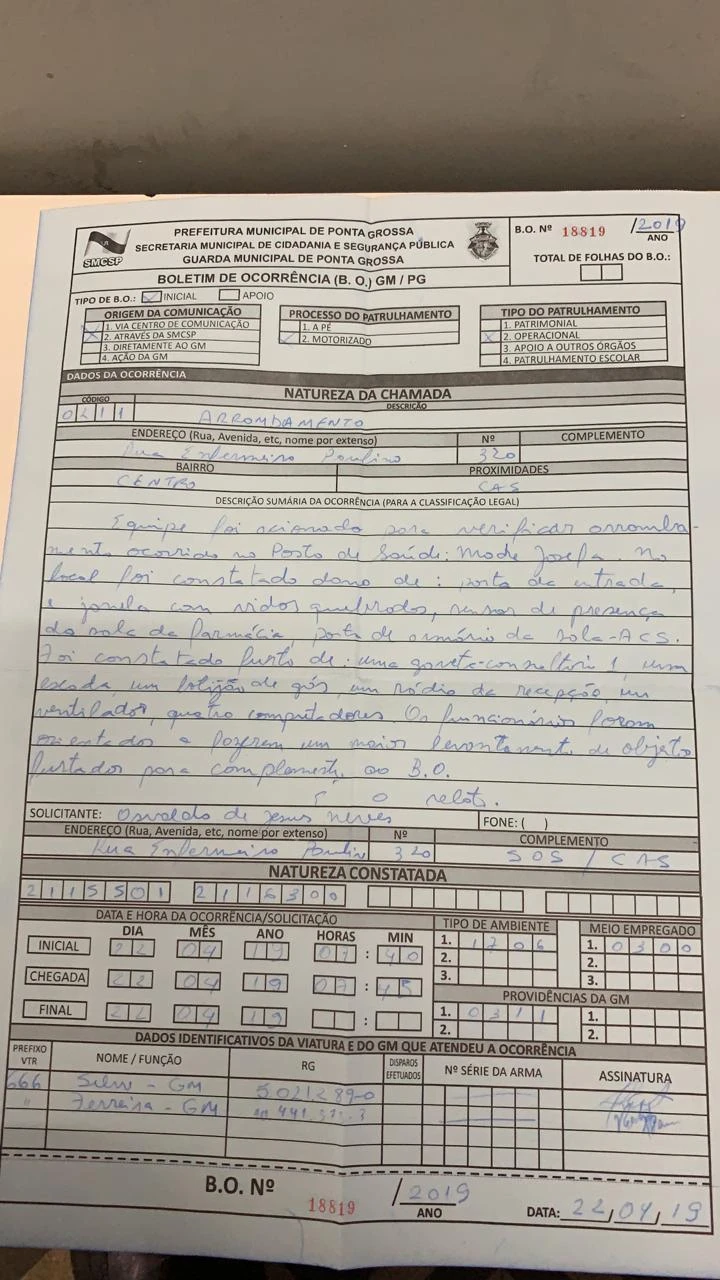 PREFEITURA MUNICIPAL DE PONTA GROSSA
SECRETARIA MUNICIPAL DE CIDADANIA E SEGURANÇA PÚBLICA
GUARDA MUNICIPAL DE PONTA GROSSA
SMCSP
BOLETIM DE OCORRÊNCIA (B. O.) GM / PG
B.O. Nº 18819 /2019
ANO
TOTAL DE FOLHAS DO B.O.:
TIPO DE B.O.: INICIAL APOIO
ORIGEM DA COMUNICAÇÃO
1. VIA CENTRO DE COMUNICAÇÃO
2. ATRAVÉS DA SMCSP
3. DIRETAMENTE AO GM
4. AÇÃO DA GM
PROCESSO DO PATRULHAMENTO
1. A PÉ
2. MOTORIZADO
TIPO DO PATRULHAMENTO
1. PATRIMONIAL
2. OPERACIONAL
3. APOIO A OUTROS ÓRGÃOS
4. PATRULHAMENTO ESCOLAR
DADOS DA OCORRÊNCIA
NATUREZA DA CHAMADA
CÓDIGO DESCRIÇÃO
0211 ARROMBAMENTO
ENDEREÇO (Rua, Avenida, etc, nome por extenso) Nº COMPLEMENTO
Rua Enfermeiro Paulino 320
BAIRRO PROXIMIDADES
CENTRO CAS
DESCRIÇÃO SUMÁRIA DA OCORRÊNCIA (PARA A CLASSIFICAÇÃO LEGAL)
Equipe foi acionada para verificar arromba-
mento ocorrido no Posto de Saúde: Madre Josefa. No
local foi constatado dano de: porta da entrada,
e janela com vidros quebrados, sensor de presença
da sala da farmácia, porta de armário da sala-ACS.
Foi constatado furto de: uma gaveta-consultório 1, uma
escada, um botijão de gás, um rádio da recepção, um
ventilador, quatro computadores. Os funcionários foram
orientados a fazerem um maior levantamento de objetos
furtados para complemento ao B.O.
É o relato.
SOLICITANTE: Osvaldo de Jesus Neves FONE: ( )
ENDEREÇO (Rua, Avenida, etc, nome por extenso) Nº COMPLEMENTO
Rua Enfermeiro Paulino 320 SOS / CAS
NATUREZA CONSTATADA
2115501 2116300
DATA E HORA DA OCORRÊNCIA/SOLICITAÇÃO
DIA MÊS ANO HORAS MIN
INICIAL 22 04 19 07 : 40
CHEGADA 22 04 19 07 : 45
FINAL 22 04 19 :
TIPO DE AMBIENTE
1. 1706
2.
3.
MEIO EMPREGADO
1. 0300
2.
3.
PROVIDÊNCIAS DA GM
1. 0311 1.
2. 2.
DADOS IDENTIFICATIVOS DA VIATURA E DO GM QUE ATENDEU A OCORRÊNCIA
PREFIXO VTR NOME / FUNÇÃO RG DISPAROS EFETUADOS Nº SÉRIE DA ARMA ASSINATURA
666 Silva - GM 5021289-0
" Ferreira - GM
B.O. Nº 18819 /2019
ANO
DATA: 22/04/19